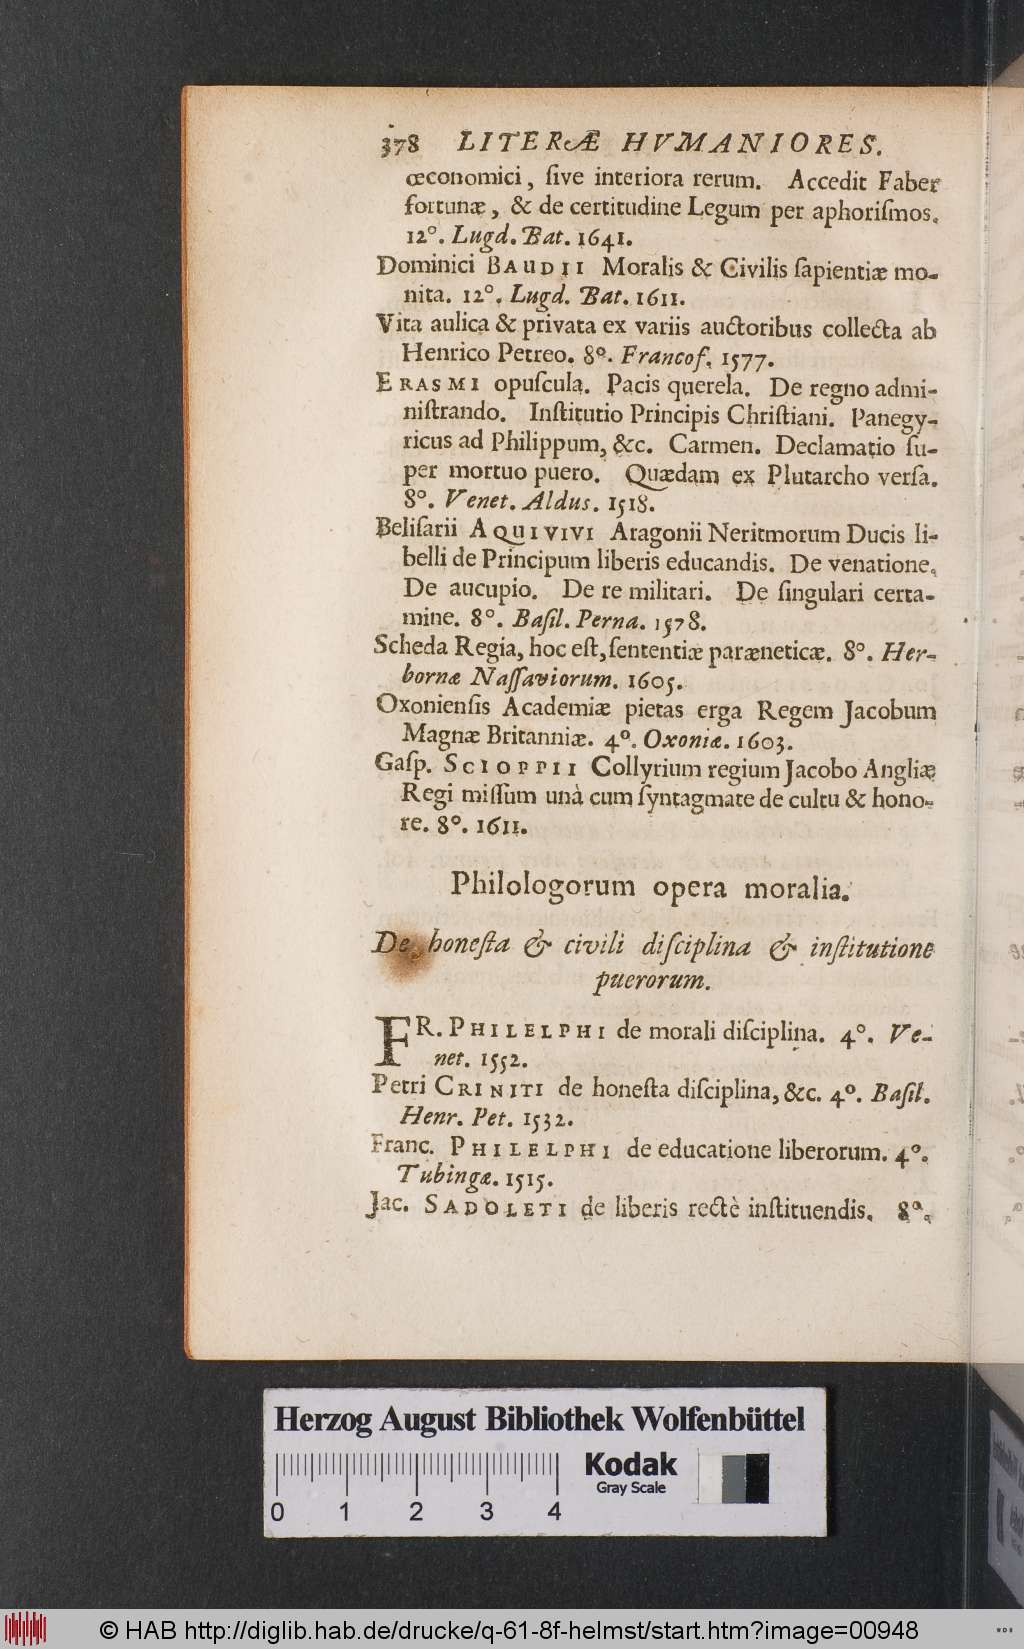 378 LITERÆ HVMANIORES.
œconomici, ſive interiora rerum. Accedit Faber
fortunæ, & de certitudine Legum per aphoriſmos.
12°. Lugd. Bat. 1641.
Dominici BAUDII Moralis & Civilis ſapientiæ mo-
nita. 12°. Lugd. Bat. 1611.
Vita aulica & privata ex variis auctoribus collecta ab
Henrico Petreo. 8°. Francof. 1577.
ERASMI opuſcula. Pacis querela. De regno admi-
niſtrando. Inſtitutio Principis Chriſtiani. Panegy-
ricus ad Philippum, &c. Carmen. Declamatio ſu-
per mortuo puero. Quædam ex Plutarcho verſa.
8°. Venet. Aldus. 1518.
Beliſarii AQUIVIVI Aragonii Neritmorum Ducis li-
belli de Principum liberis educandis. De venatione.
De aucupio. De re militari. De ſingulari certa-
mine. 8°. Baſil. Perna. 1578.
Scheda Regia, hoc eſt, ſententiæ paræneticæ. 8°. Her-
bornæ Naſſaviorum. 1605.
Oxonienſis Academiæ pietas erga Regem Jacobum
Magnæ Britanniæ. 4°. Oxoniæ. 1603.
Gaſp. SCIOPPII Collyrium regium Jacobo Angliæ
Regi miſſum unà cum ſyntagmate de cultu & hono-
re. 8°. 1611.
Philologorum opera moralia.
De honeſta & civili diſciplina & inſtitutione
puerorum.
FR. PHILELPHI de morali diſciplina. 4°. Ve-
net. 1552.
Petri CRINITI de honeſta diſciplina, &c. 4°. Baſil.
Henr. Pet. 1532.
Franc. PHILELPHI de educatione liberorum. 4°.
Tubingæ. 1515.
Jac. SADOLETI de liberis rectè inſtituendis. 8°.
Herzog August Bibliothek Wolfenbüttel
Kodak
Gray Scale
0 1 2 3 4
© HAB http://diglib.hab.de/drucke/q-61-8f-helmst/start.htm?image=00948